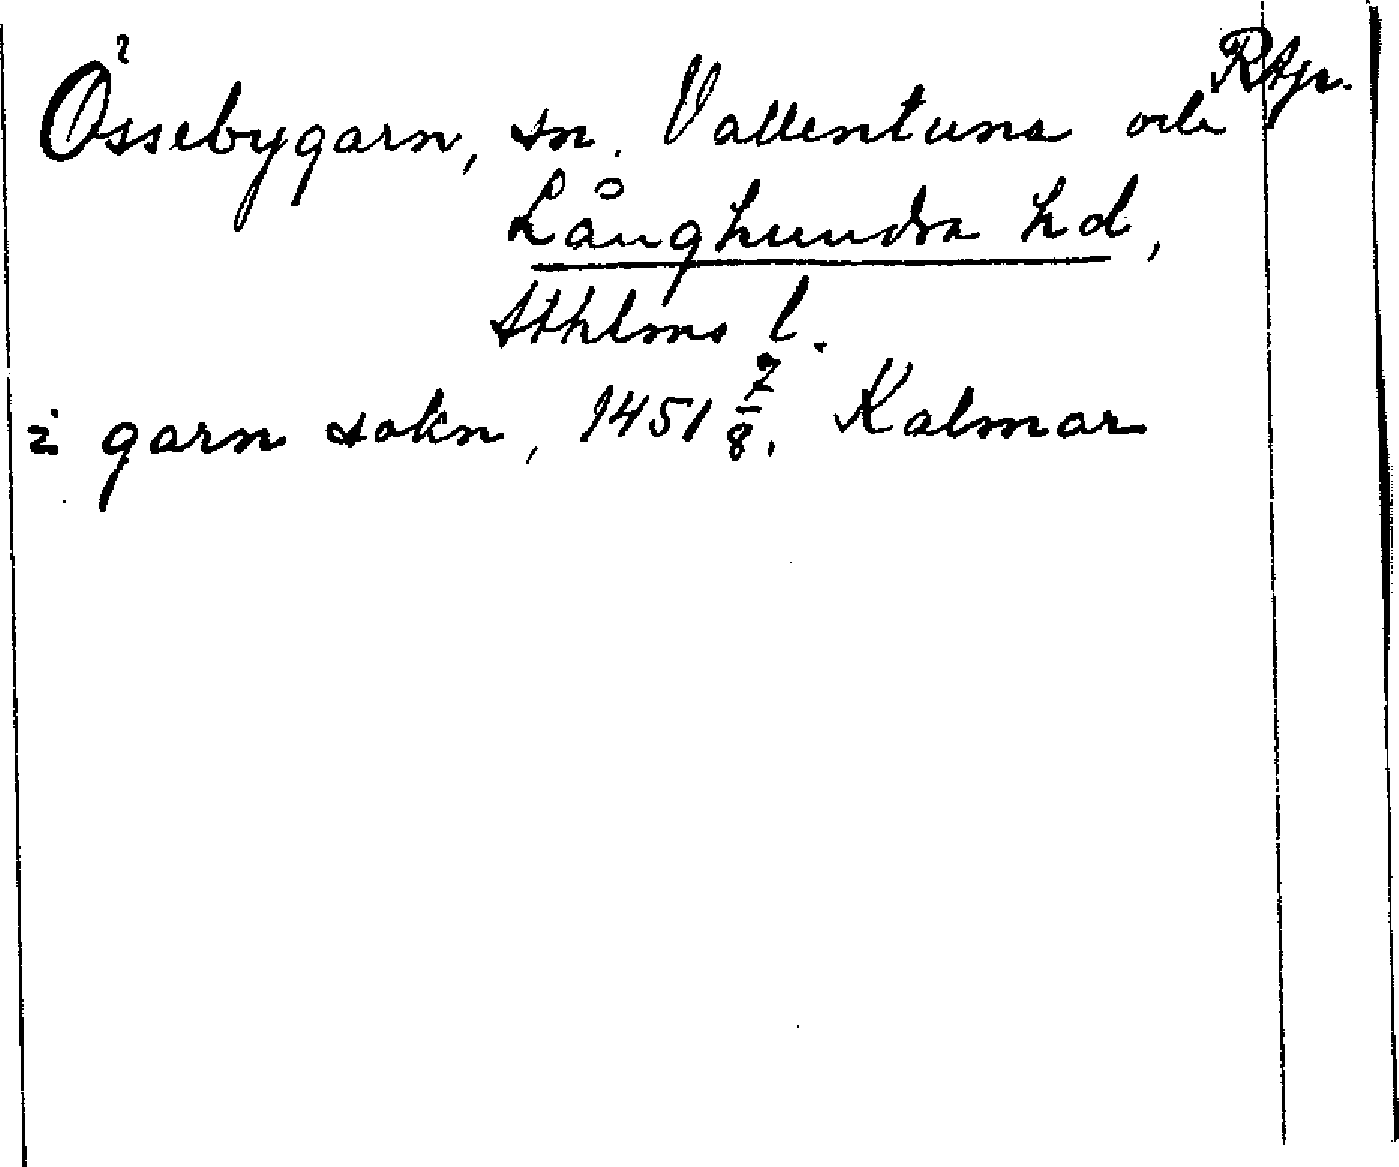 Rtjr.
Össebygarn, sn. Vallentuna och
Långhundra hd,
Sthlms l.
i garn sokn, 1451 7/8. Kalmar